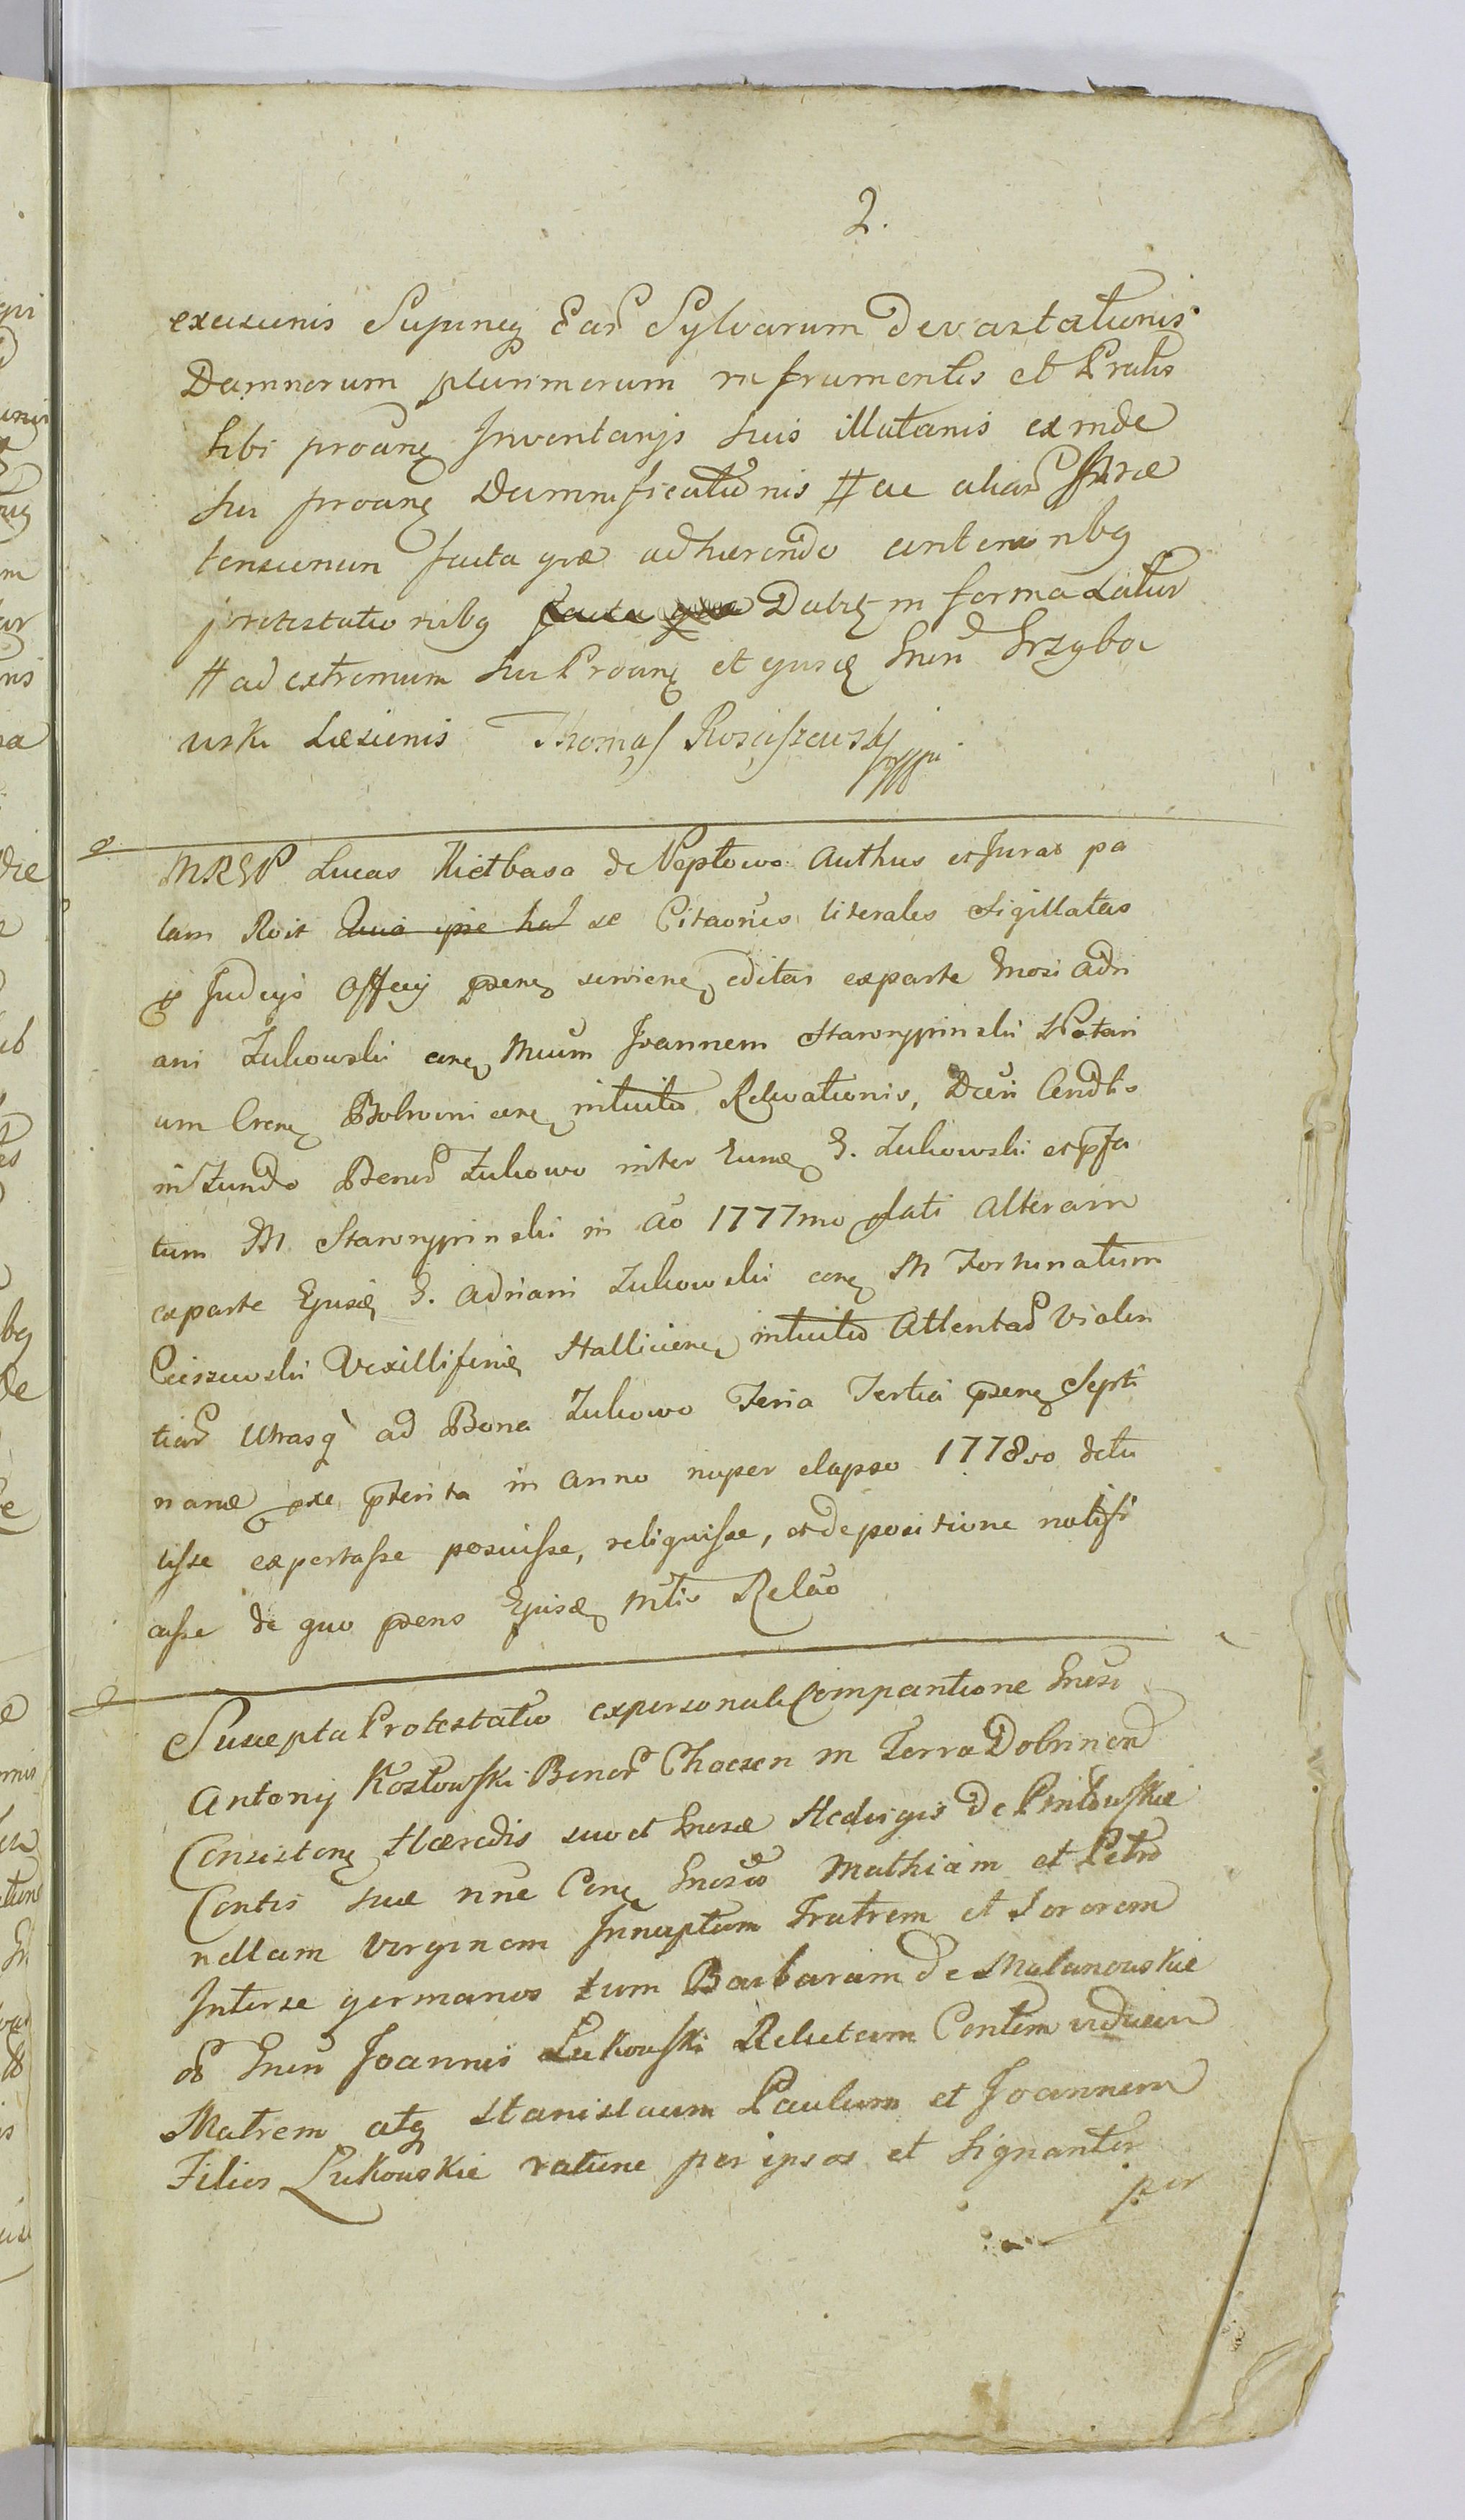 2.
excisionis Supineq Ear Sylvarum Devastationis
Damnorum plurimorum in frumentis et Pratis
sibi proãnę Inventarijs suis illatarũ exinde
sui proanę Damnificationis # ac aliar Præ
tensionum facta quæ adhærendo anterioribq
protestationibq facta quæ Dabitę in forma Latiur
# ad extremum sui Proanę et ejusdę Gnen Grzybow
wski Læsionis Thomas Rosciszewski mppu
MREP Lucas Kietbasa de Neptowo Authus et Jurat pa
lam Roit Quia ipse hal se Citaones literales Sigillatas
p Judcijs Officij psenę serviene, editas exparte Gnosi Adri
ani Zukowski conę Mcum Joannem Starorypinski Notari
um Crenę Bobrownicenę intuitu Relevationis, Dcũn Condtis
in fundo Bener Zukowo inter Eumdę G. Zukowski et pfa
tum M. Starorypinski in Ao 1777mo Lati Alteram
exparte Ejusdę G. Adriani Zukowski conę M Fortunatum
Cissowski Vexilliferũę Halliciene, intuitu Attentar Violen
tiar Utrasq ad Bona Zukowo Feria Tertia psenę Septi
manæ pxe pterita in anno nuper elapso 1778vo detu
lisse expertasse posuisse, reliquisse, et de positione notifi
casse de quo psens Ejusdę Mtis Relão
Suscepta Protestatio expersonali Comparitione Gnesi
Antonij Kozłowski Bener Choczen in Terra Dobrinen
Consistenę Hæredis suo et Gnesæ Hedvigis de
Contis suæ nne Conę Gnesũ Mathiam et Petro
nellam Virginem Innuptam Fratrem et Sororem
Interse germanos tum Barbaram de Malanowskie
os Gnen Joannis Lukowski Relictam Contem viduam
Matrem atq Stanislaum Paulum et Joannem
Filios Lukowskie ratione per ipsos et Signanter
per